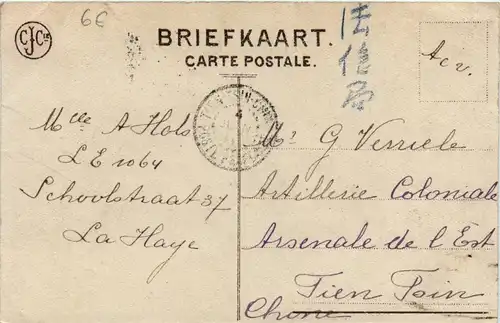 6E
CJC
BRIEFKAART.
CARTE POSTALE.
Mlle A Hols
LE 1064
Schoolstraat 37
La Haye
Acv.
Mr G Verriele
Artillerie Coloniale
Arsenale de l'Est
Tien Tsin
Chone